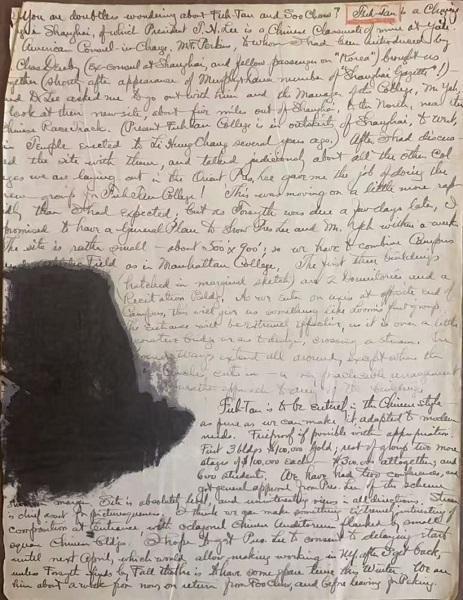 You are doubtless wondering about Fuh-Tan and Soo Chow? Fuh-Tan is a Chinese
Shanghai, of which President T. H. Lee is a Chinese Classmate of mine at Yale.
American Consul-in-Charge, Mr. Perkins, to whom I had been introduced by
Chas. (ex-consul at Shanghai, and fellow passenger on "Korea") brought us
together (shortly after appearance of Murphy & Dana number of "Shanghai Gazette"!)
and Dr Lee asked me to go out with him and the Manager of the College, Mr Yeh,
look at their new site, about five miles out of Shanghai, to the North, near the
Chinese Race Track. (Present Fuh-tan College is in outskirts of Shanghai, to West,
in Temple erected to Li Hung Chang several years ago.) After I had discuss-
ed the site with them, and talked judiciously about all the other Col-
leges we are laying out in the Orient Pres. Lee gave me the job of doing the
new group for Fuh-Tan College! This was moving on a little more rap-
idly than I had expected; but as Forsyth was due a few days later, I
promised to have a General Plan to show Pres Lee and Mr. Yeh within a week.
The site is rather small - about 500' x 900', so we have to combine Campus
Field as in Manhattan College. The first three buildings
(hatched in marginal sketch) are 2 Dormitories and a
Recitation Bldg. As we enter on axis at opposite end of
Campus, this will give us something like group.
The entrance will be extremely effective, as it is over a little
bridge to design, crossing a stream. The
extend all around except where the
cuts in - a very practicable arrangement
approach to any of the buildings
Fuh-Tan is to be entirely in the Chinese style -
as pure as we can make it adapted to modern
needs. Fireproof if possible with appropriation.
First 3 bldgs $100,000 gold, rest of group two more
stages of $100,000 each. $300,000 altogether, and
600 students. We have had two conferences, and
got general approval from Pres. Lee of the scheme
margin. Site is absolutely level, and uninteresting views in all directions. Stream
is chief asset for picturesqueness. I think we can make something extremely interesting of
composition at Entrance with octagonal Chinese Auditorium flanked by small
square Chinese Bldgs. I hope to get Pres. Lee to consent to delaying start
until next April, which would allow making working in NY after I get back,
unless Forsyth finds by Fall that he is to have some spare time this Winter. We see
him about a week from now, on return from Foochow, and before leaving for Peking.